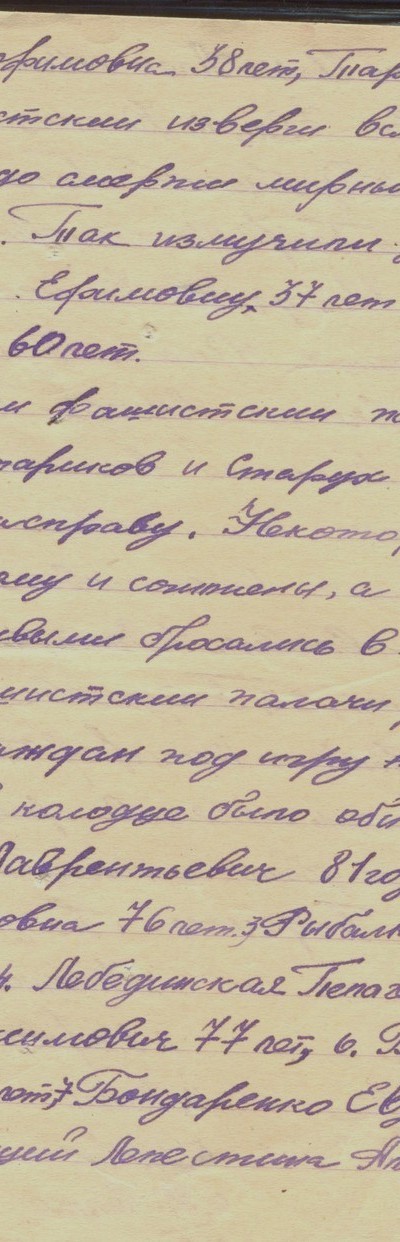 ефимовна 38 лет, Тар
стский изверги вс
до смерти мирны
. Так измучили
. Ефимовну, 37 лет
60 лет.
и фашистский п
тариков и старух
асправу. Некотор
аму и сожжены, а
ивыми бросались в
шистский палачи
аждан под игру н
колодце было обн
Лаврентьевич 81 го
овна 76 лет. 3, Рыбал
4. Лебединская Пелаг
симович 77 лет, 6. В
лет, 7 Бондаренко Ев
щий Лепестина Ан